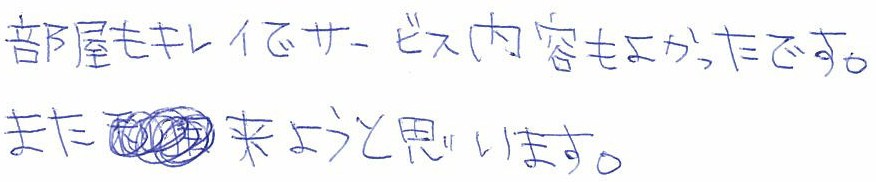 部屋もキレイでサービス内容もよかったです。
また来ようと思います。